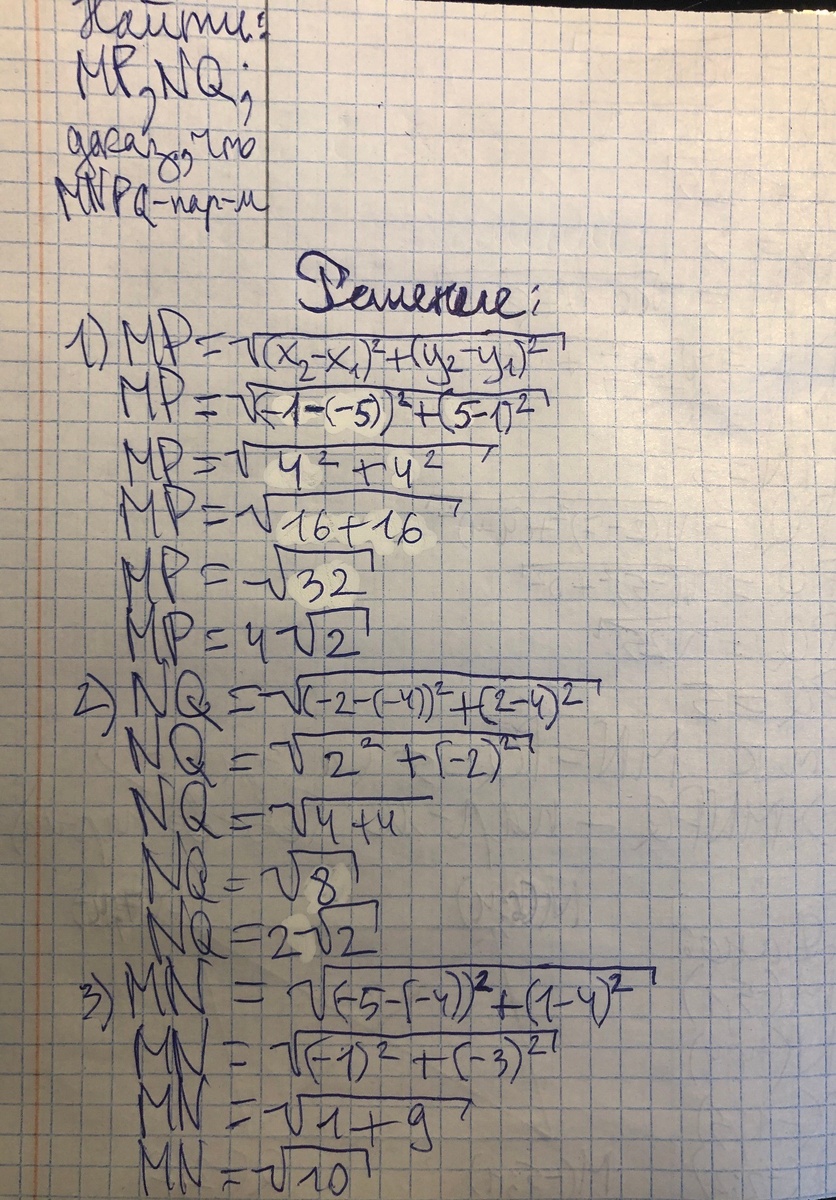 Найти:
MP, NQ;
доказ., что
MNPQ-пар-м
Решение:
1) MP=√(x₂-x₁)²+(y₂-y₁)²
MP=√(-1-(-5))²+(5-1)²
MP=√4²+4²
MP=√16+16
MP=√32
MP=4√2
2) NQ=√(-2-(-4))²+(2-4)²
NQ=√2²+(-2)²
NQ=√4+4
NQ=√8
NQ=2√2
3) MN=√(-5-(-4))²+(1-4)²
MN=√(-1)²+(-3)²
MN=√1+9
MN=√10